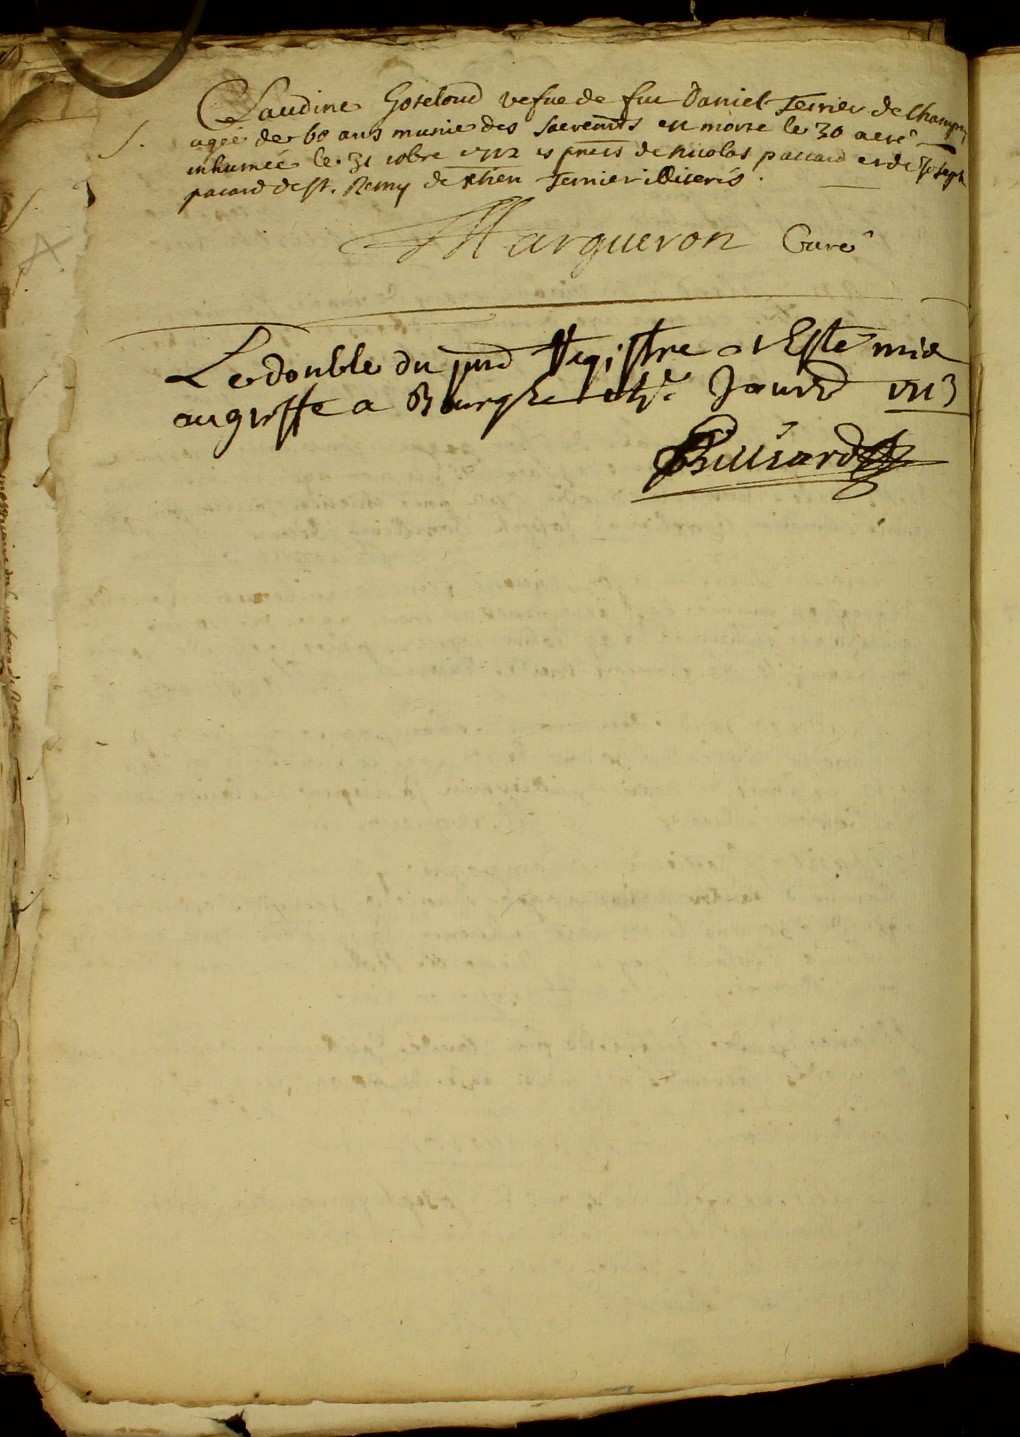 Claudine Goseloud vefue de feu Daniel Terrier de Champ
S. agée de 60 ans munie des sacremts est morte le 30 a eté
inhumée le 31 10bre 1712 es pnces de Nicolas paccard et de Joseph
pacard de St. Remy de Terrier illiterés.
Margueron Curé
Le double du pnt Registre a Esté mis
au greffe a Bourg le Janvr 1713
Billiard